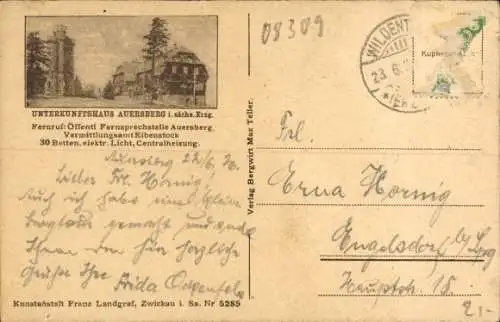 08309
UNTERKUNFTSHAUS AUERSBERG i. sächs. Erzg.
Fernruf: Öffentl Fernsprechstelle Auersberg,
Vermittlungsamt Eibenstock
30 Betten, elektr. Licht, Centralheizung.
Auersberg 22/6
Liebes Frl. Hornig!
Auch ich habe eine kleine
Bergtour gemacht und sende
Ihnen von hier herzliche
Grüße Ihre Frida
Kunstanstalt Franz Landgraf, Zwickau i. Sa. Nr 5285
Verlag Bergwirt Max Teller.
WILDENT
23. 6.
Frl.
Erna Hornig
Engelsdorf b/Lpzg
Hauptstr. 18.
2,-